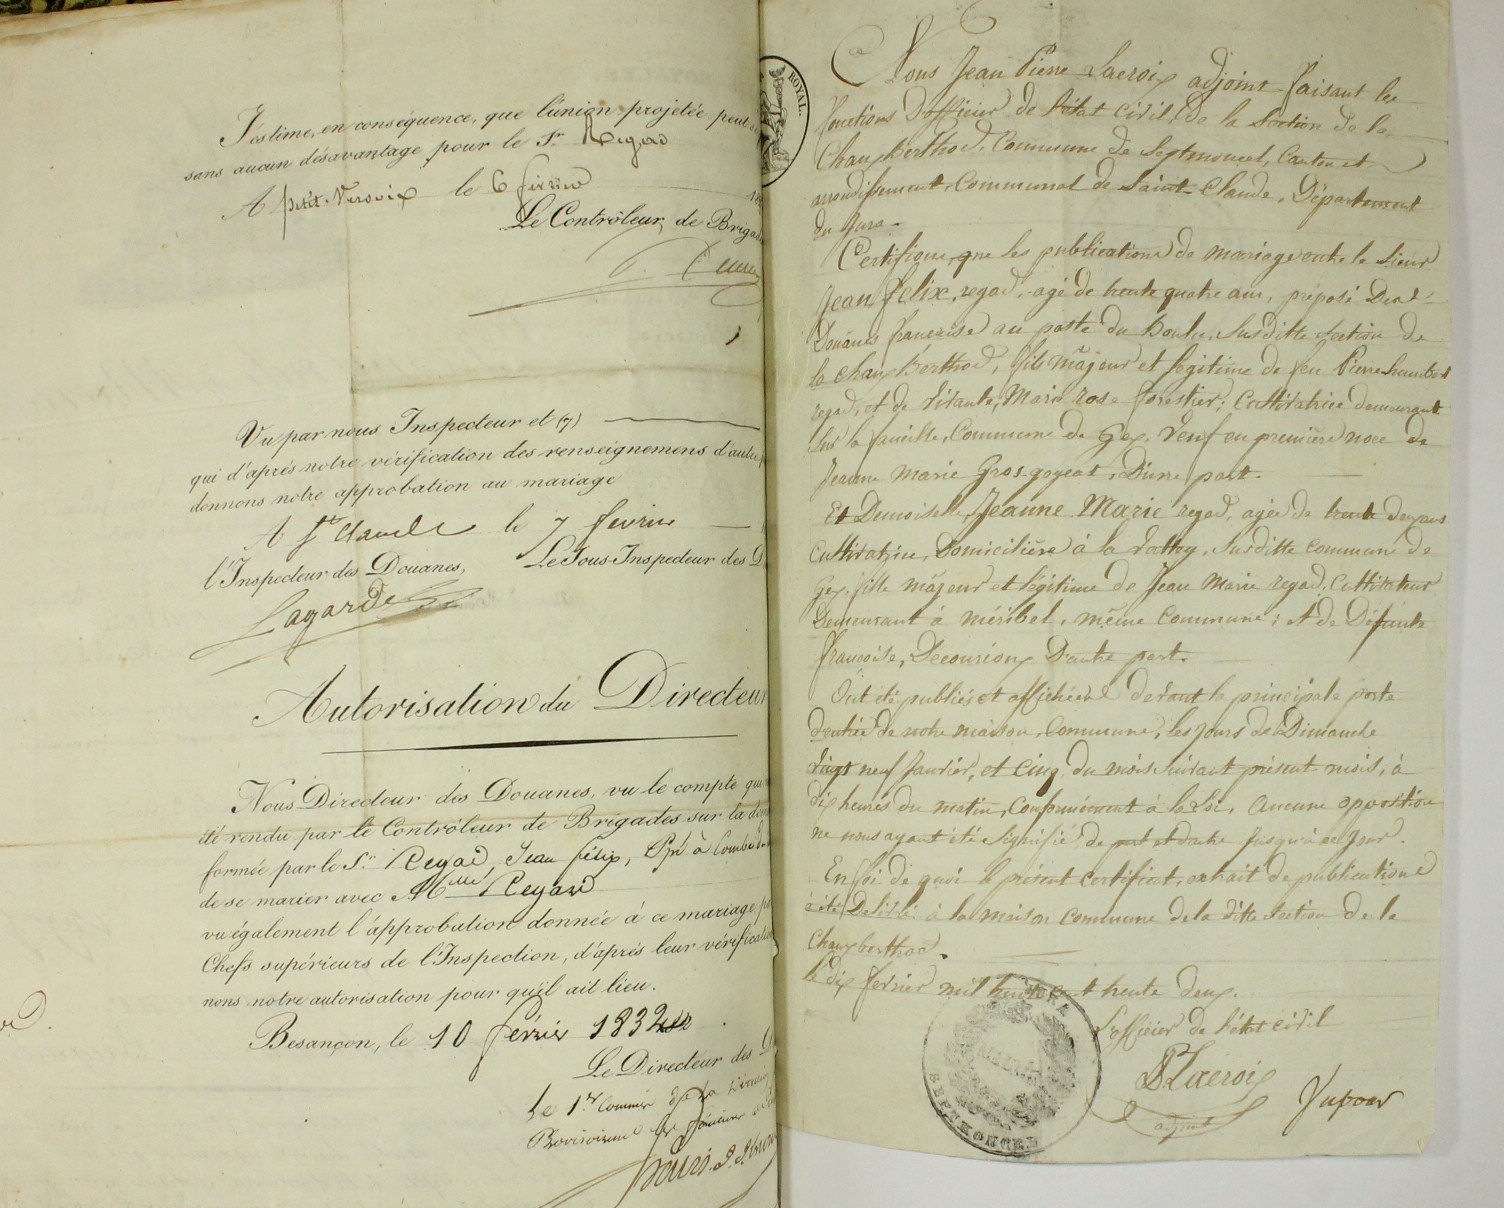 J'estime, en conséquence, que l'union projetée peut
sans aucun désavantage pour le Sr Regad
A petit-Versoix le 6 février
Le Contrôleur, de Brigad
Vu par nous Inspecteur et (7)
qui d'après notre vérification des renseignemens d'autre
donnons notre approbation au mariage
A St Claude le 7 fevrier
l'Inspecteur des Douanes, Le Sous-Inspecteur des D
Lagarde
Autorisation du Directeur
Nous Directeur des Douanes, vu le compte qui
été rendu par le Contrôleur de Brigades sur la dem
formée par le Sr Regad, Jean félix, Pré à Combe
de se marier avec Mlle Regard
vu également l'approbation donnée à ce mariage p
Chefs supérieurs de l'Inspection, d'après leur vérification
nons notre autorisation pour qu'il ait lieu.
Besançon, le 10 février 1832
Le Directeur des D
Le 1er Commis de la
Provisoirement
ROYAL.
Nous Jean Pierre Lacroix adjoint faisant les
fonctions D'officier de l'état civil, de la Section de la
Chaux Berthod, Commune de Septmoncel, Canton et
arrondissement Communal de Saint-Claude, Département
du Jura.
Certifions, que les publications de mariage entre le Sieur
Jean félix, regad, agé de trente quatre ans, préposé Des
Douânes françaises au poste du boulu, Susditte Section de
la chaux Berthod, fils majeur et légitime de feu Pierre humbert
regad, et de vivante, Marie rose forestier, Cultivatrice demeurant
Sur la faucille, Commune de Gex, Veuf en première noce de
Jeanne Marie Gros-goyeat, D'une part.
Et Demoiselle, Jeanne Marie regad, agée de trente deux ans
Cultivatrice, Domiciliére à la Vattay, Susditte commune de
Gex, fille majeur et légitime de Jean Marie regad, Cultivateur
Demeurant à méribel, même Commune; et de Défunte
françoise, Ducurion, D'autre part.
Ont été publiés et affichées devant la principale porte
d'entrée de notre maison, Commune, les jours de Dimanche
Vingt neuf Janvier, et cinq du mois Suivant présent mois, à
dix heures du matin, Conformément à la Loi. Aucune opposition
ne nous ayant été Signifié de part et d'autre jusqu'à ce jour.
En foi de quoi le présent certificat, extrait de publications
a été Délivré à la maison commune de la ditte Section de la
Chauxberthod.
le dix février mil huit cent trente deux.
L'officier de l'état civil
JP Lacroix
adjoint
SEPTMONCEL